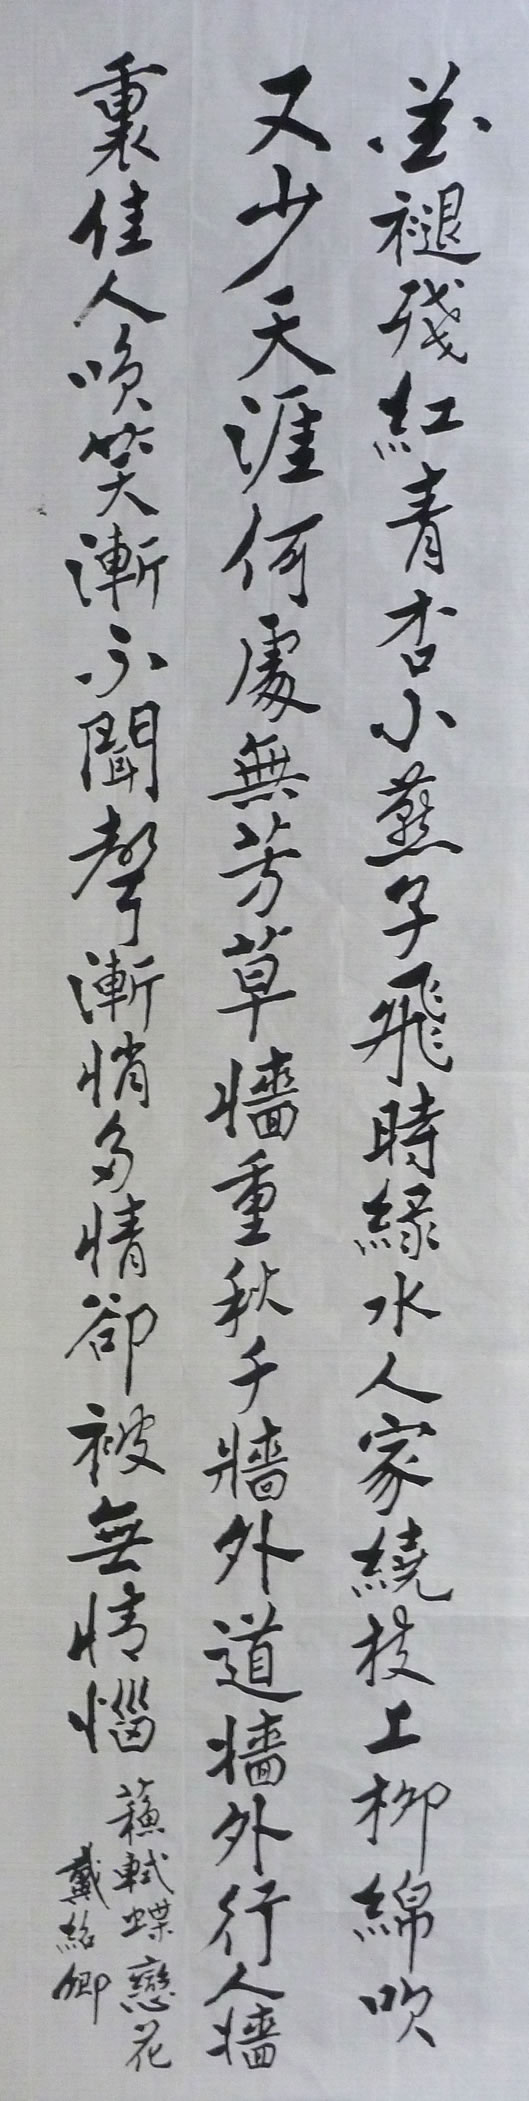 花褪殘紅青杏小燕子飛時緑水人家繞枝上柳綿吹
又少天涯何處無芳草牆重秋千牆外道牆外行人牆
裏佳人唤笑漸不聞聲漸悄多情卻被無情惱
蘇軾蝶戀花
戴紹卿